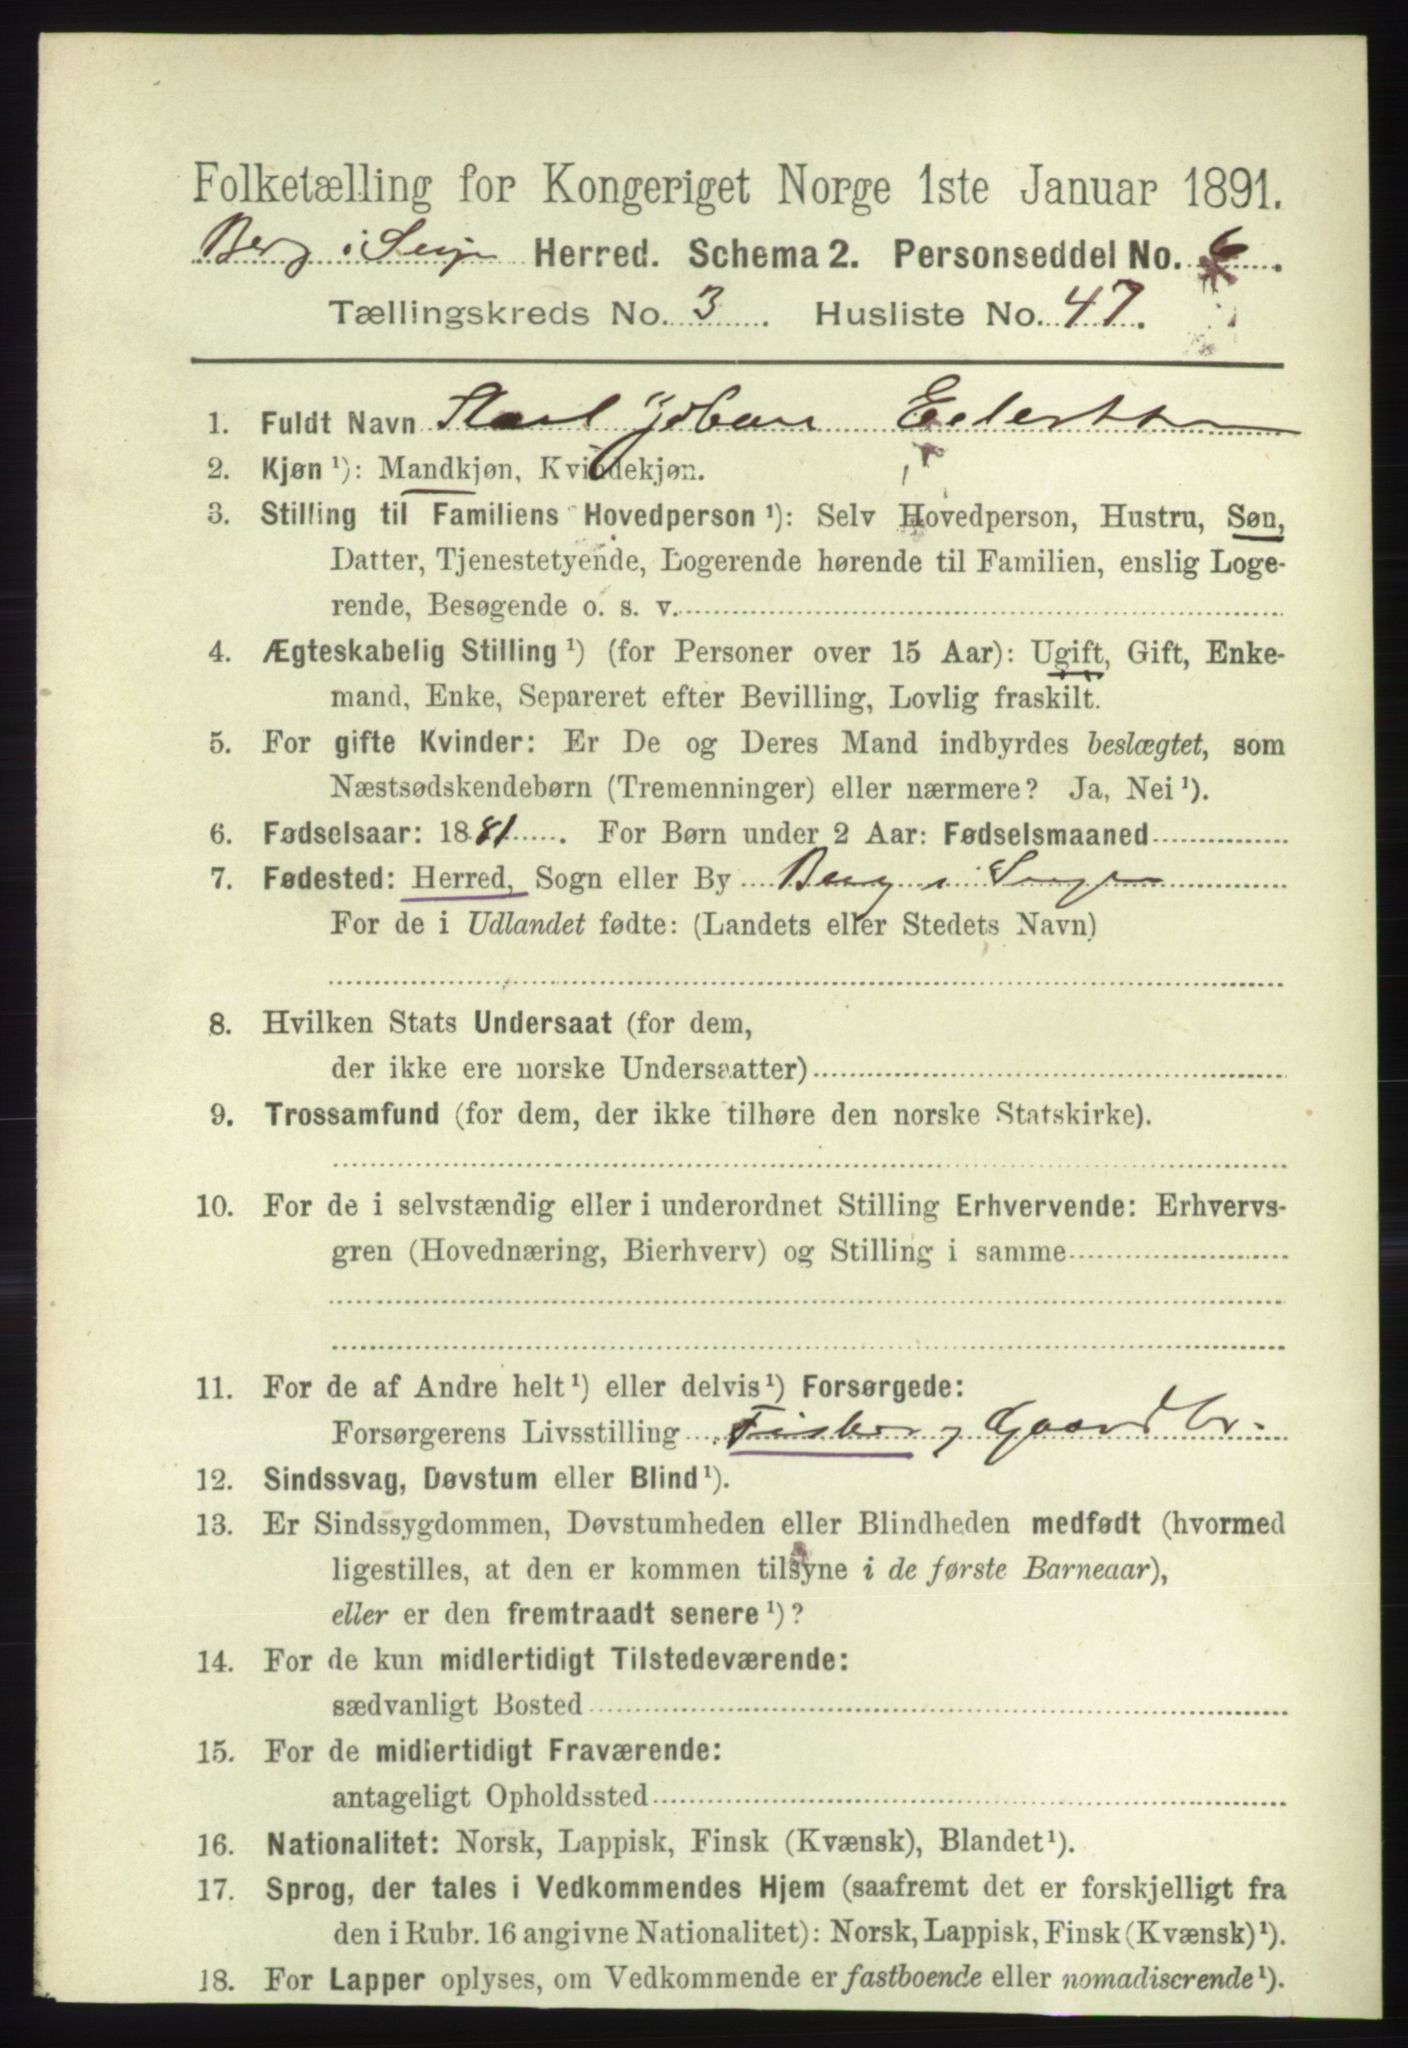 Folketælling for Kongeriget Norge 1ste Januar 1891.
Berg i Senjen Herred. Schema 2. Personseddel No. 6.
Tællingskreds No. 3. Husliste No. 47.
1. Fuldt Navn Karl Johan Eilertsen
2. Kjøn ¹): Mandkjøn, Kvindekjøn.
3. Stilling til Familiens Hovedperson ¹): Selv Hovedperson, Hustru, Søn,
Datter, Tjenestetyende, Logerende hørende til Familien, enslig Loge-
rende, Besøgende o. s. v.
4. Ægteskabelig Stilling ¹) (for Personer over 15 Aar): Ugift, Gift, Enke-
mand, Enke, Separeret efter Bevilling, Lovlig fraskilt.
5. For gifte Kvinder: Er De og Deres Mand indbyrdes beslægtet, som
Næstsødskendebørn (Tremenninger) eller nærmere? Ja, Nei ¹).
6. Fødselsaar: 1881. For Børn under 2 Aar: Fødselsmaaned
7. Fødested: Herred, Sogn eller By Berg i Senjen
For de i Udlandet fødte: (Landets eller Stedets Navn)
8. Hvilken Stats Undersaat (for dem,
der ikke ere norske Undersaatter)
9. Trossamfund (for dem, der ikke tilhøre den norske Statskirke).
10. For de i selvstændig eller i underordnet Stilling Erhvervende: Erhvervs-
gren (Hovednæring, Bierhverv) og Stilling i samme
11. For de af Andre helt ¹) eller delvis ¹) Forsørgede:
Forsørgerens Livsstilling Fisker og Gaardbr.
12. Sindssvag, Døvstum eller Blind ¹).
13. Er Sindssygdommen, Døvstumheden eller Blindheden medfødt (hvormed
ligestilles, at den er kommen tilsyne i de første Barneaar),
eller er den fremtraadt senere ¹)?
14. For de kun midlertidigt Tilstedeværende:
sædvanligt Bosted
15. For de midlertidigt Fraværende:
antageligt Opholdssted
16. Nationalitet: Norsk, Lappisk, Finsk (Kvænsk), Blandet ¹).
17. Sprog, der tales i Vedkommendes Hjem (saafremt det er forskjelligt fra
den i Rubr. 16 angivne Nationalitet): Norsk, Lappisk, Finsk (Kvænsk) ¹).
18. For Lapper oplyses, om Vedkommende er fastboende eller nomadiserende ¹).